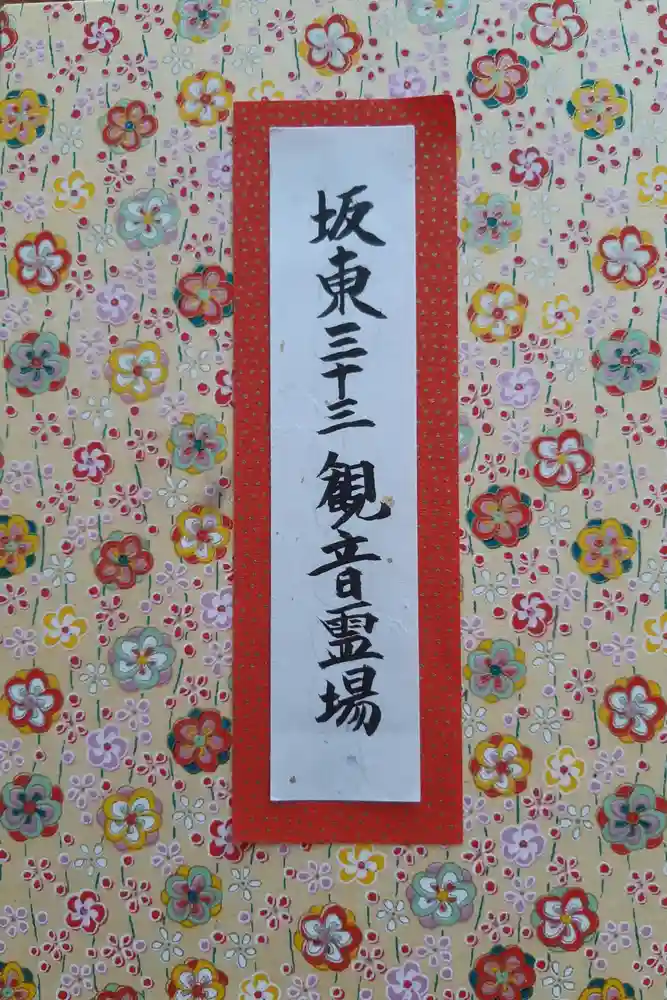 坂東三十三観音霊場